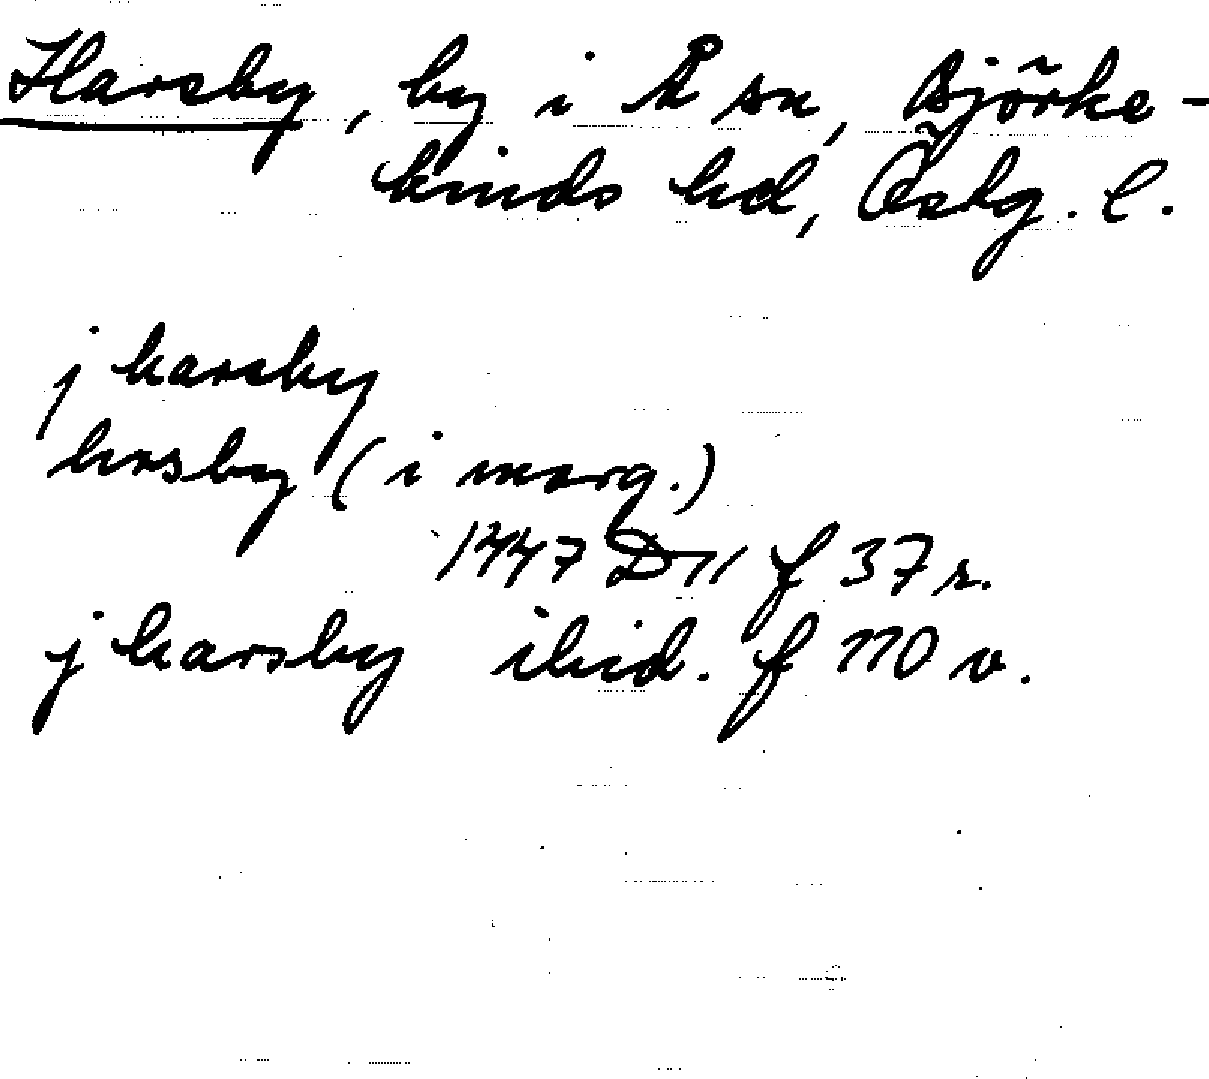 Harsby, by i Å sn, Björke-
kinds hd, Östg. l.
j harsby
hrsby (i marg.)
1447 D 11 f 37 r.
j harsby ibid. f 110 v.